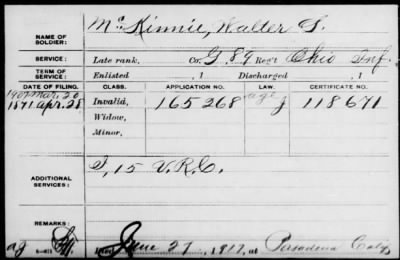 NAME OF SOLDIER: McKinnie, Walter S.
SERVICE: Late rank, Co. G, 89 Reg't Ohio Inf.
TERM OF SERVICE: Enlisted , 1 Discharged , 1
DATE OF FILING. CLASS. APPLICATION NO. LAW. CERTIFICATE NO.
1907 Mar. 20
1871 Apr. 28 Invalid, 165268 age J 118671
Widow,
Minor,
ADDITIONAL SERVICES: I, 15 V.R.C.
REMARKS:
Died June 27, 1917, at Pasadena Calif